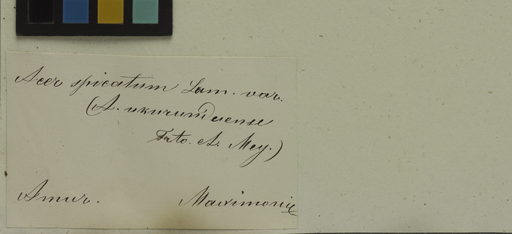 Acer spicatum Lam. var.
(A. ukurunduense
Trto. et Mey.)
Amur. Maximowicz